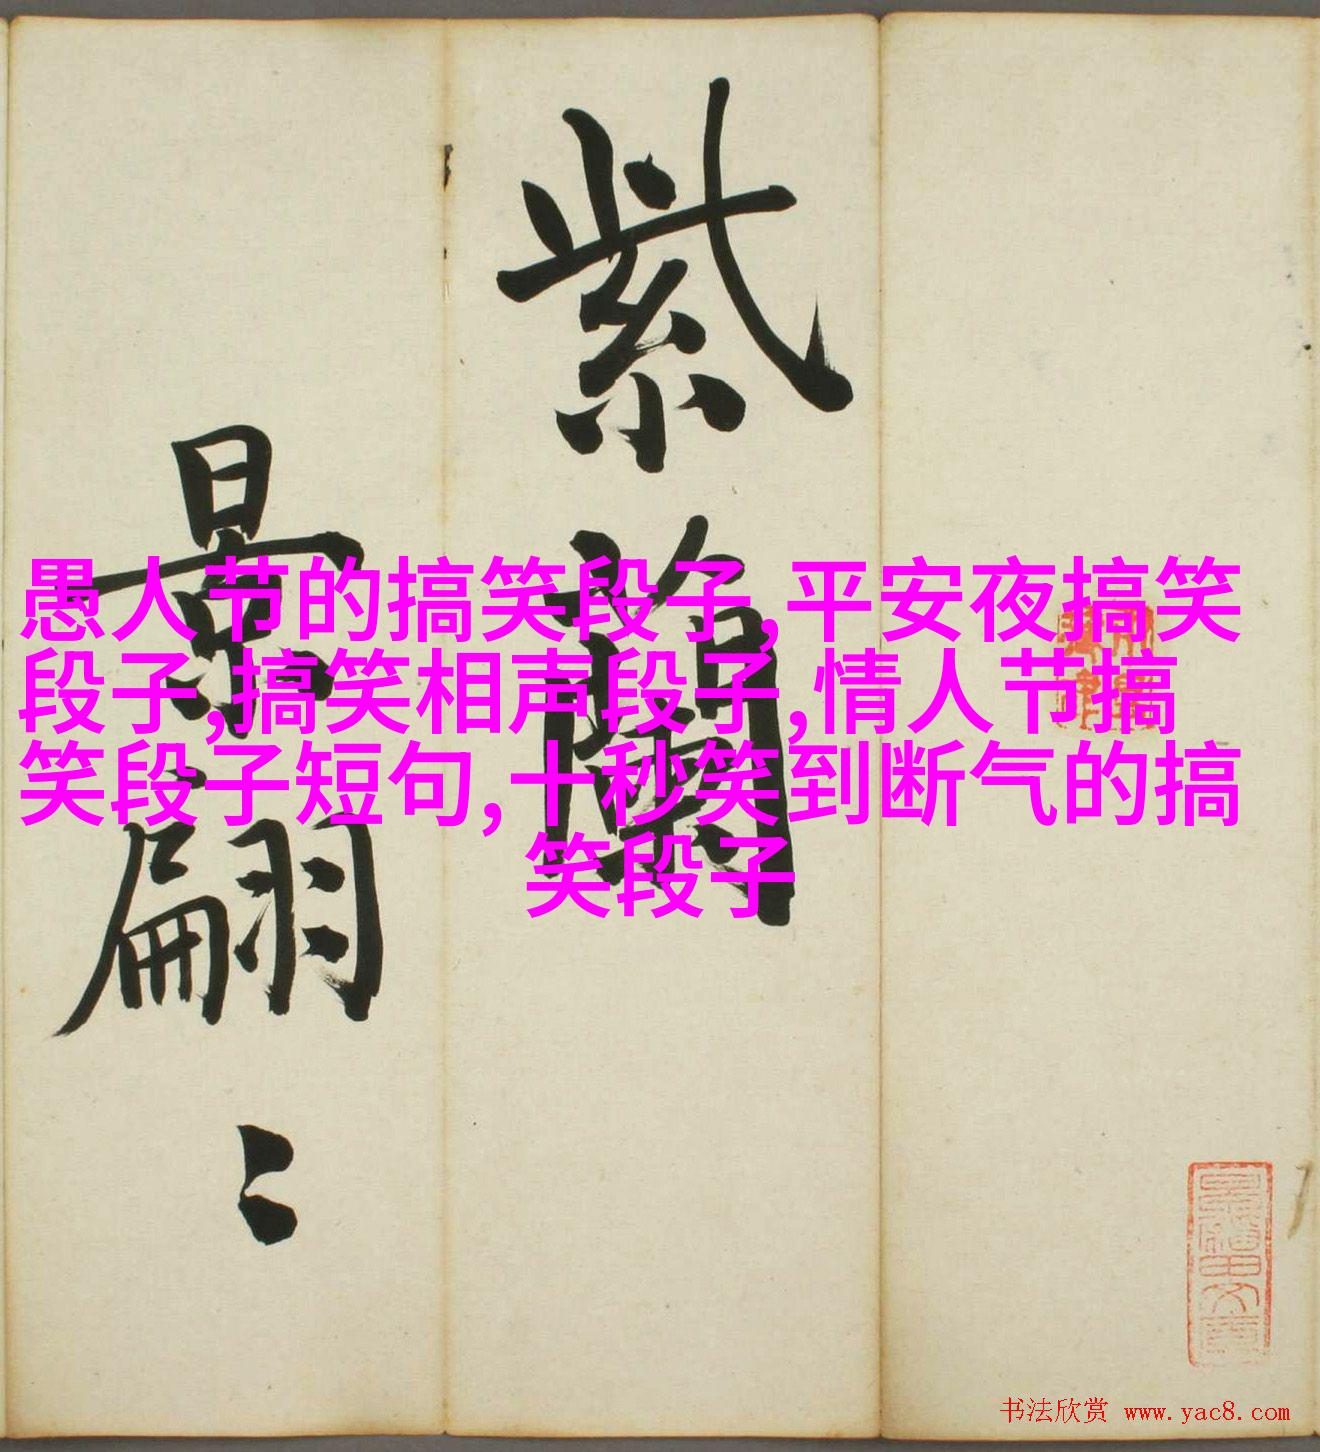 紫蘭
景翩〻
愚人节的搞笑段子,平安夜搞笑
段子,搞笑相声段子,情人节搞
笑段子短句,十秒笑到断气的搞
笑段子
书法欣赏 www.yac8.com